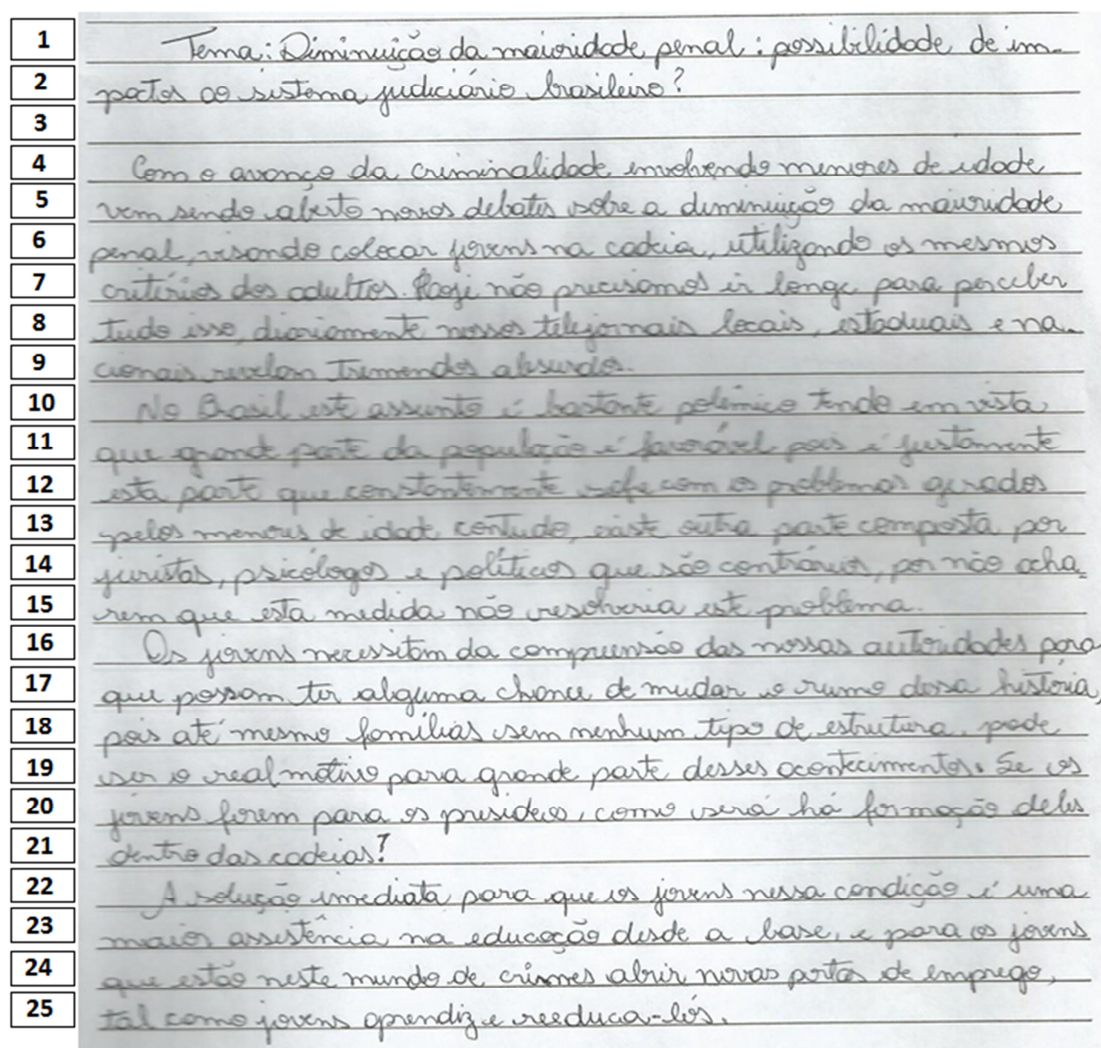 1 Tema: Diminuição da maioridade penal: possibilidade de im-
2 pactos ao sistema judiciário brasileiro?
3
4 Com o avanço da criminalidade envolvendo menores de idade
5 vem sendo aberto novos debates sobre a diminuição da maioridade
6 penal, visando colocar jovens na cadeia, utilizando os mesmos
7 critérios dos adultos. Hoje não precisamos ir longe para perceber
8 tudo isso, diariamente nossos telejornais locais, estaduais e na-
9 cionais revelam tremendos absurdos.
10 No Brasil este assunto é bastante polêmico tendo em vista
11 que grande parte da população é favorável pois é justamente
12 esta parte que constantemente sofe com os problemas gerados
13 pelos menores de idade, contudo, existe outra parte composta por
14 juristas, psicólogos e políticos que são contrários, por não acha-
15 rem que esta medida não resolveria este problema.
16 Os jovens necessitam da compreensão das nossas autoridades para
17 que possam ter alguma chance de mudar o rumo dessa história,
18 pois até mesmo famílias sem nenhum tipo de estrutura, pode
19 ser o real motivo para grande parte desses acontecimentos. Se os
20 jovens forem para os presídeos, como será há formação deles
21 dentro das cadeias?
22 A solução imediata para que os jovens nessa condição é uma
23 maior assistência na educação desde a base, e para os jovens
24 que estão neste mundo de crimes abrir novas portas de emprego,
25 tal como jovens aprendiz e reeduca-lós.